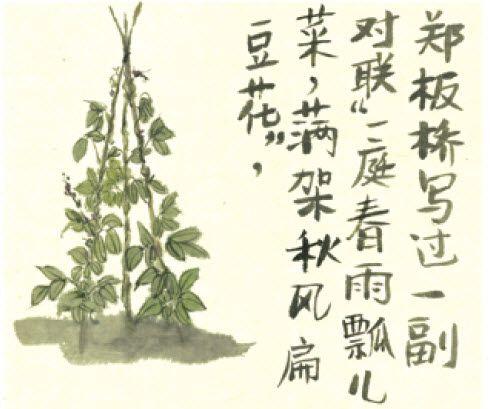 郑板桥写过一副
对联“一庭春雨瓢儿
菜，满架秋风扁
豆花”，